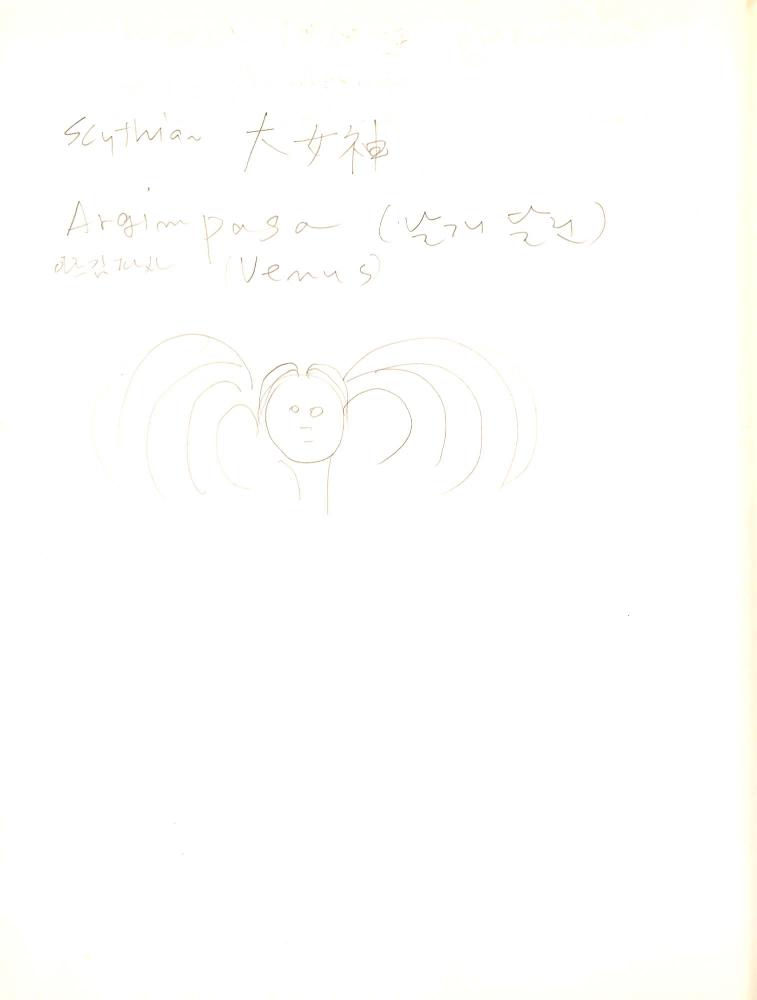 Scythian 大女神
Argimpasa (날개 달린)
(Venus)